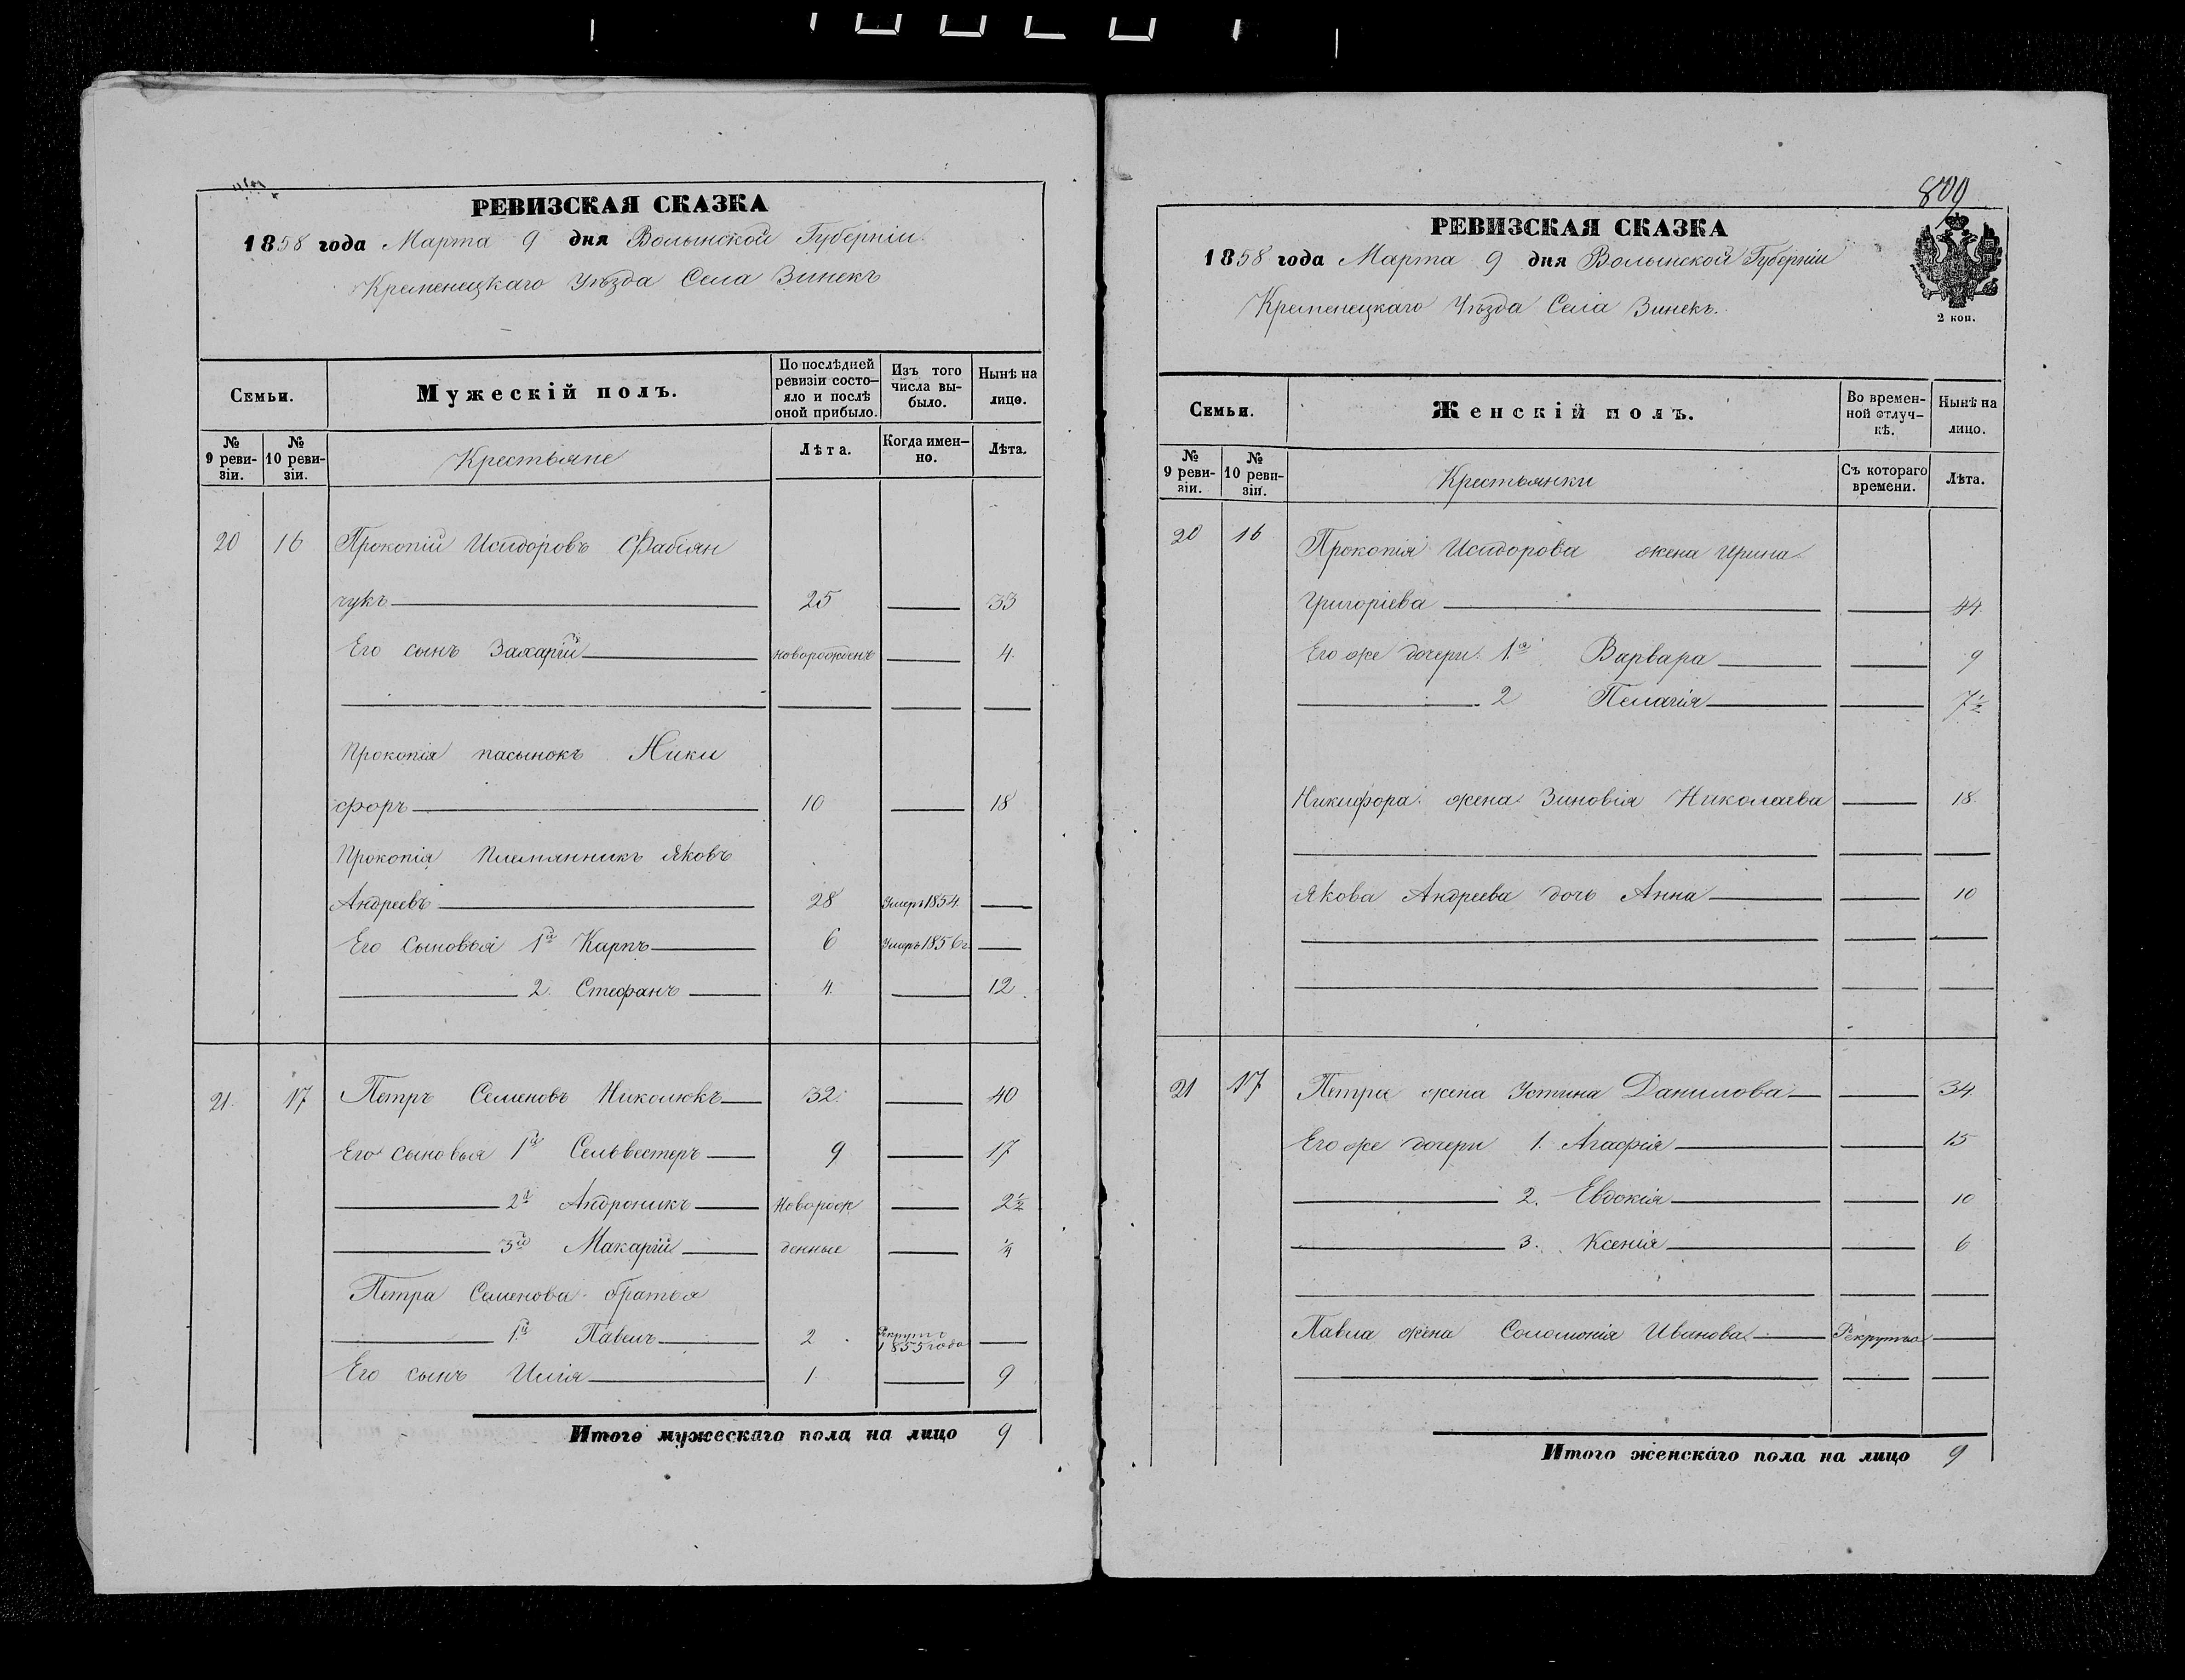 РЕВИЗСКАЯ СКАЗКА
1858 года Марта 9 дня Волынской Губерніи
Кременецкаго Уѣзда Села Зинекъ
Семьи.
Мужескій полъ.
По послѣдней ревизіи состо-яло и послѣ оной прибыло.
Изъ того числа вы-было.
Нынѣ на лицо.
№ 9 реви-зіи.
№ 10 реви-зіи.
Крестьяне
Лѣта.
Когда имен-но.
Лѣта.
20 16 Прокопій Исидоровъ Фабіян
чукъ 25 33
Его сынъ Захарій новорожденъ 4
Прокопія пасынокъ Ники
форъ 10 18
Прокопія Племянникъ Яковъ
Андреевъ 28 Умеръ 1854
Его сыновья 1й Карпъ 6 Умеръ 1856 г.
2. Стефанъ 4 12
21. 17 Петръ Семеновъ Николюкъ 32. 40
Его сыновья 1й Сельвестеръ 9 17
2й Андроникъ Новорож 2½
3й Макарій денные ¼
Петра Семенова братья
1й Павелъ 2 Рекрутъ 1855 года
Его сынъ Илія 1 9
Итого мужескаго пола на лицо 9
809
РЕВИЗСКАЯ СКАЗКА
1858 года Марта 9 дня Волынской Губерніи
Кременецкаго Уѣзда Села Зинекъ.
2 коп.
Семьи.
Женскій полъ.
Во времен-ной отлуч-кѣ.
Нынѣ на лицо.
№ 9 реви-зіи.
№ 10 реви-зіи.
Крестьянки
Съ котораго времени.
Лѣта.
20 16 Прокопія Исидорова жена Ирина
Григоріева 44.
Его же дочери 1я Варвара 9
2 Пелагія 7½
Никифора жена Зиновія Николаева 18.
Якова Андреева дочь Анна 10
21 17 Петра жена Устина Данилова 34.
Его же дочери 1. Агафія 15
2. Евдокія 10
3. Ксенія 6
Павла жена Соломонія Иванова Рекрутка
Итого женскаго пола на лицо 9